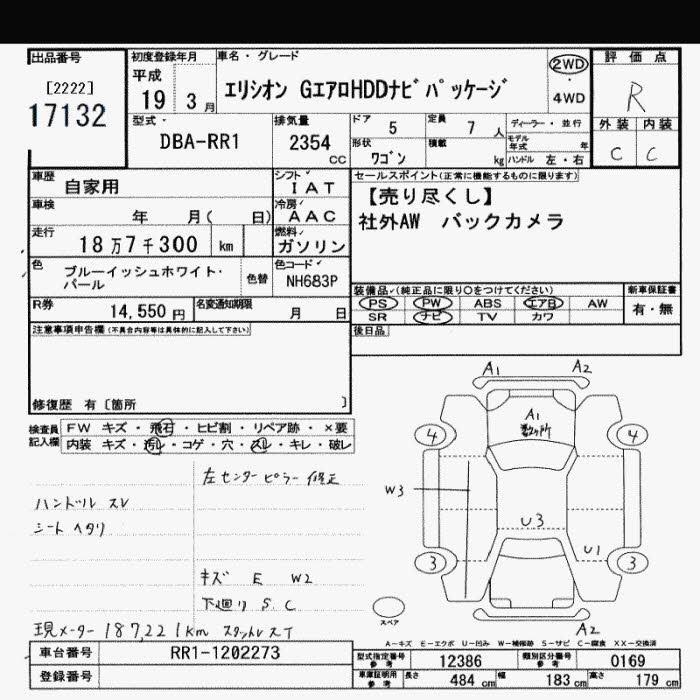 出品番号
[2222]
17132
初度登録年月
平成
19 3 月
車名・グレード
エリシオン GエアロHDDナビパッケージ
2WD
・
4WD
評価点
R
外装 内装
C C
型式・
DBA-RR1
排気量
2354
cc
ドア 5
定員 7 人
形状 ワゴン
積載 kg
ディーラー・並行
モデル年式 年
ハンドル 左・右
車歴 自家用
シフト IAT
車検 年 月( 日)
冷房 AAC
走行 18万7千300 km
燃料 ガソリン
色 ブルーイッシュホワイト・パール
色替
色コード NH683P
R券 14,550 円
名変通知期限 月 日
セールスポイント(正常に機能するものに限ります)
【売り尽くし】
社外AW バックカメラ
装備品(純正品に限り○をつけてください)
PS PW ABS エアB AW
SR ナビ TV カワ
新車保証書
有・無
後日品
注意事項申告欄(不具合内容等は具体的に記入して下さい)
修復歴 有〔箇所 〕
検査員記入欄
FW キズ・飛石・ヒビ割・リペア跡・×要
内装 キズ・汚レ・コゲ・穴・スレ・キレ・破レ
左センターピラー修正
ハンドル スレ
シート ヘタリ
キズ E W2
下廻り S C
現メーター 187,221km スタッドレスT
A1 A2
A1
数ヶ所
4 4
W3
U3
U1
3 3
スペア
A2
A-キズ E-エクボ U-凹み W-補修跡 S-サビ C-腐食 XX-交換済
車台番号 RR1-1202273
登録番号
型式指定番号 参考 12386
類別区分番号 参考 0169
車庫証明用 参考 長さ 484 cm 幅 183 cm 高さ 179 cm